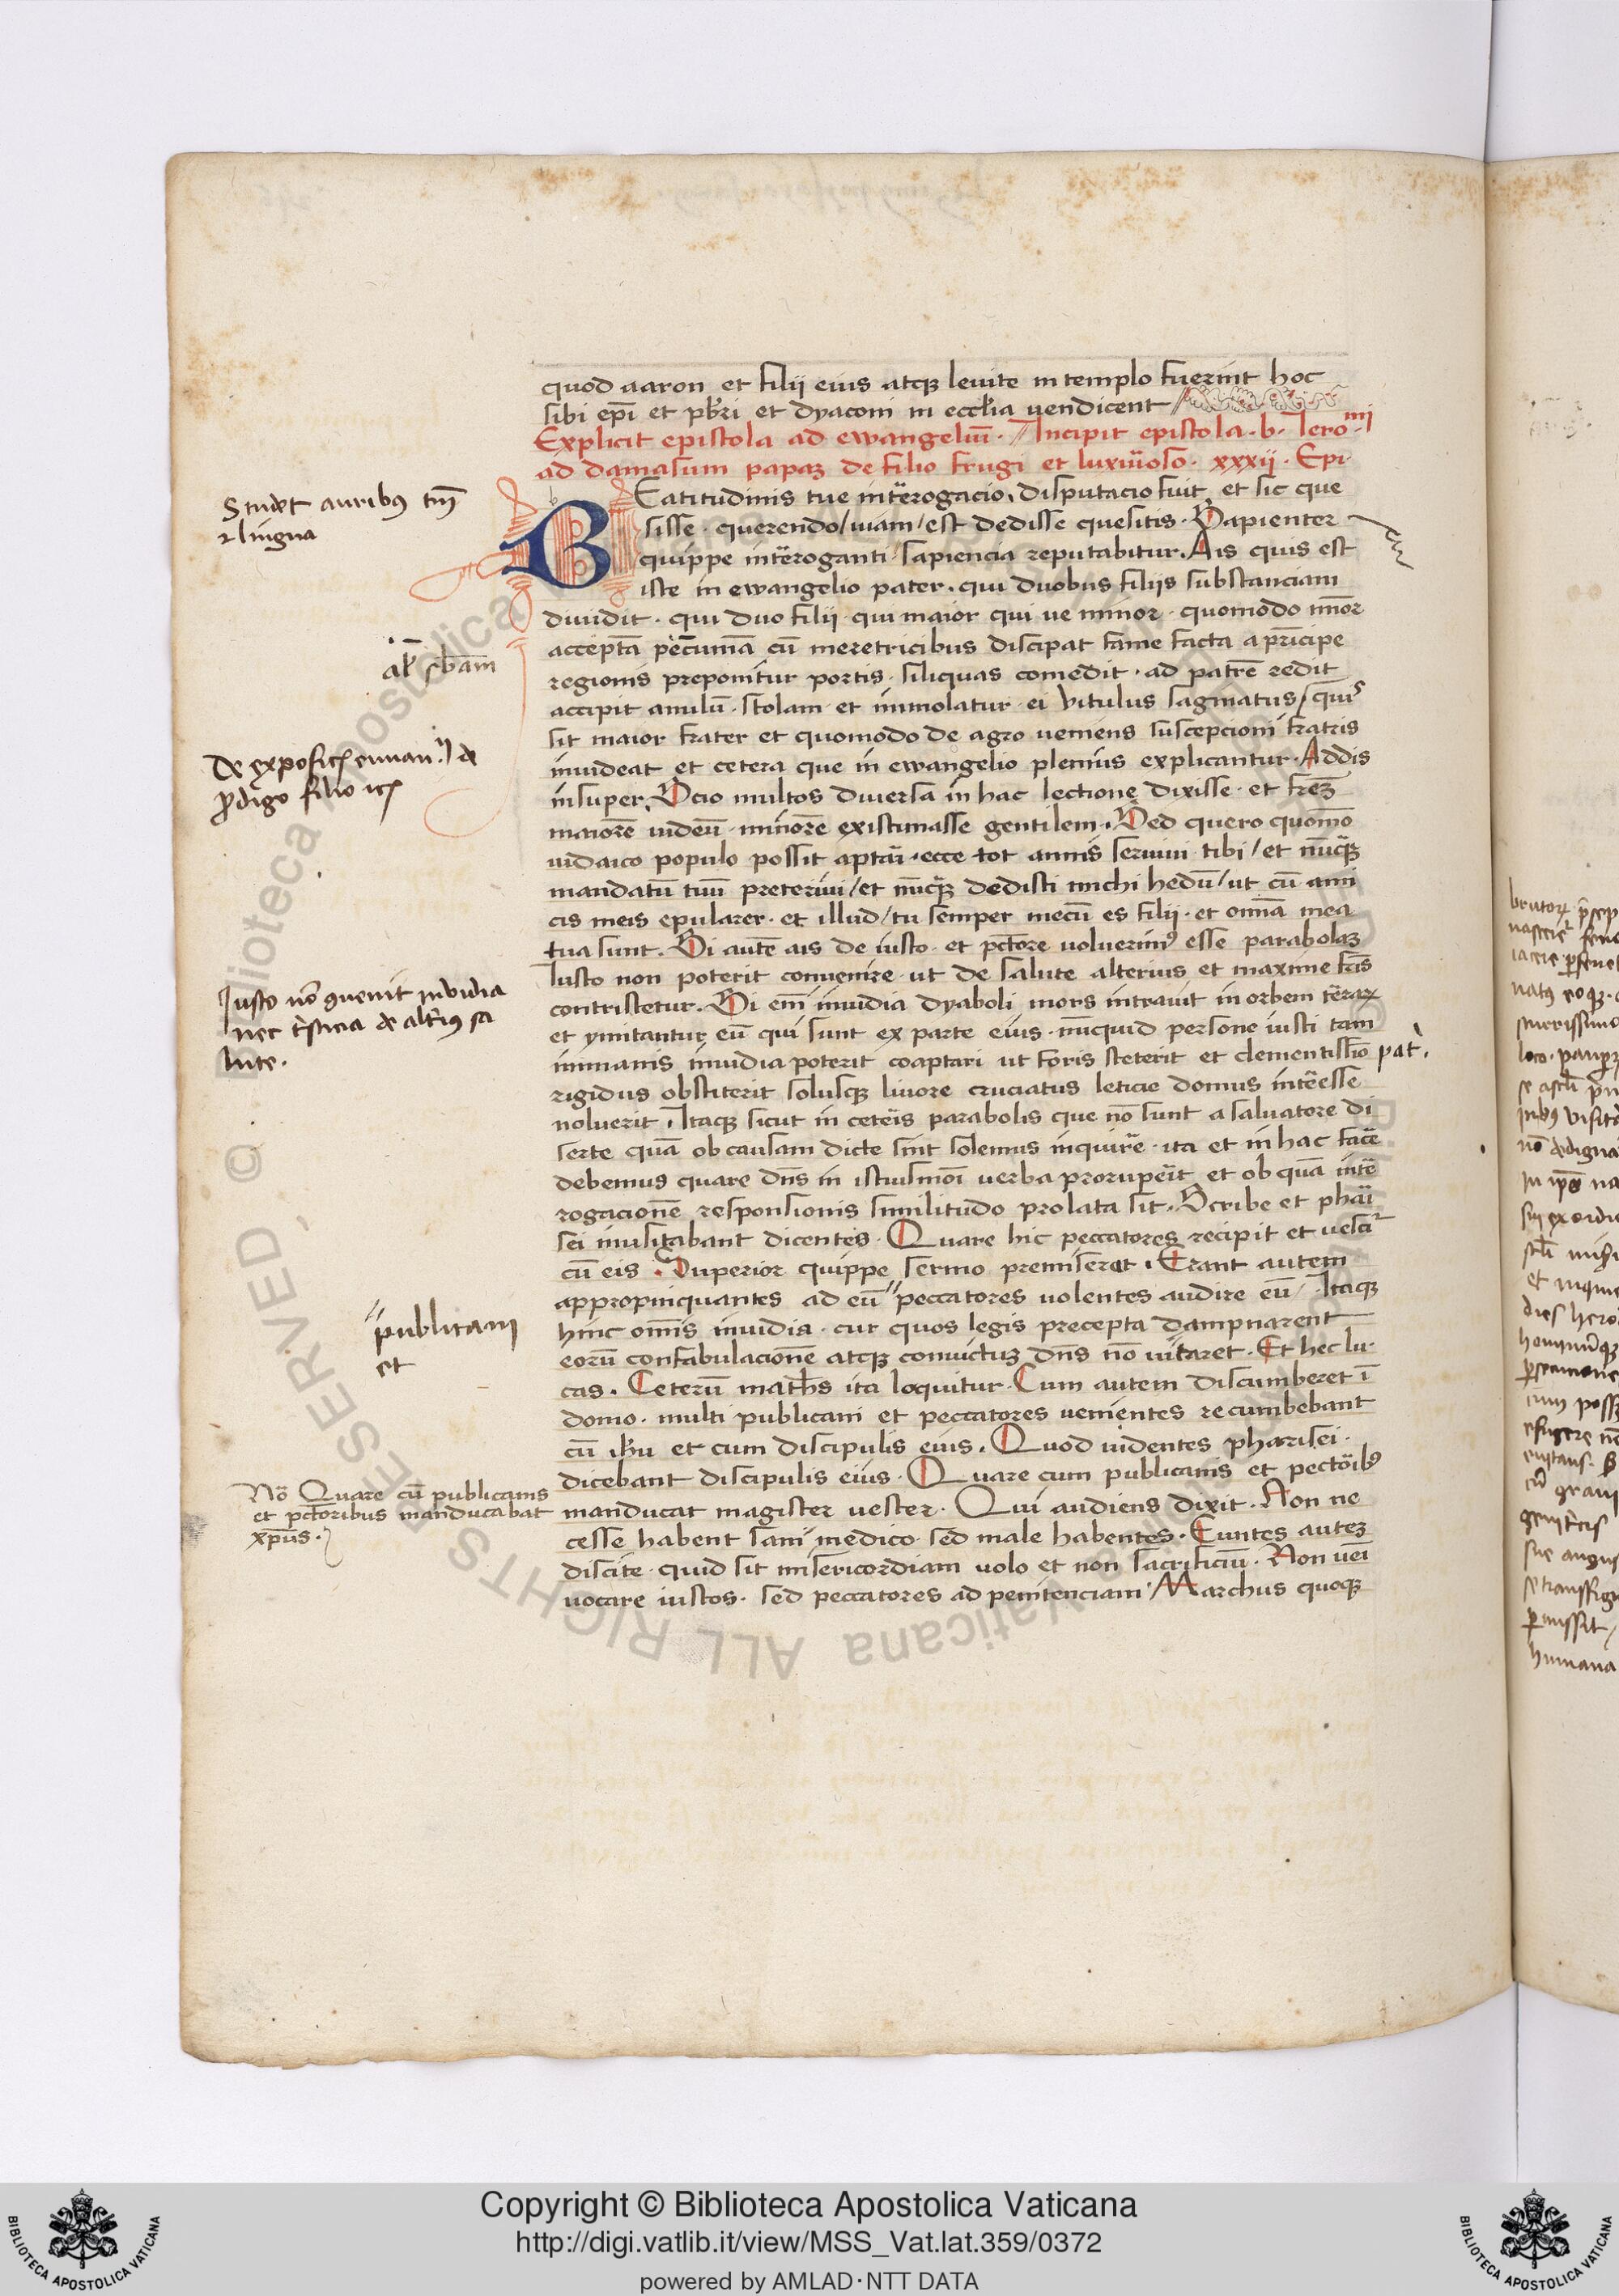 quod aaron et filii eius atqȝ leuite in templo fuerint hoc
sibi ep̄i et pb̄ri et dyaconi in ecclīa uendicent
Explicit epistola ad ewangeliū · Incipit epistola · b · Iero
ad damasum papaȝ de filio frugi et luxurioso · xxxij · Epi·
BEatitudinis tue int̄erogacio, disputacio fuit, et sic que
sisse · querendo / uiam / est dedisse quesitis · Sapienter
quippe int̄erroganti sapiencia reputabitur. Ais quis est
iste in ewangelio pater · qui duobus filiis substanciam
diuidit · qui duo filii · qui maior qui ue minor · quomodo mīor
acceptā pecuniā cū meretricibus discipat fame facta a prīcipe
regionis preponitur portis · siliquas comedit · ad patrē redit
accipit anulū · stolam et immolatur ei vitulus saginatus / quis
sit maior frater et quomodo de agro ueniens suscepcioni fratris
inuideat et cetera que in ewangelio plenius explicantur · Addis
insuper. Scio multos diuersa in hac lectione dixisse · et frēȝ
maiorē iudeū · minorē existimasse gentilem. Sed quero quomō
iudaico populo possit aptari · ecce tot annis seruiui tibi / et nūcqȝ
mandatū tuū preteriui / et nūcqȝ dedisti michi hedū / ut cū ami
cis meis epularer · et illud / tu semper mecū es filii · et omnā mea
tua sunt. Si autē ais de iusto · et pctōre uoluerim⁹ esse parabolaȝ
Iusto non poterit conuenire · ut de salute alterius et maxime fr̄is
contristetur. Si em̄ inuidia dyaboli mors intrauit in orbem terraꝝ
et ymitantur eū qui sunt ex parte eius · nūquid persone iusti tam
inmanis inuidia poterit coaptari ut foris steterit et clementissīo
rigidus obstiterit solusqȝ liuore cruciatus leticie domus int̄eesse
noluerit. Itaqȝ sicut in ceteris parabolis que nō sunt a saluatore di
serte quā ob causam dicte sint solemus inquirē · ita et in hac facē
debemus quare dn̄s in istiusmōi uerba prorupeīt et ob quā int̄e
rogacionē responsionis similitudo prolata sit. Scribe et phari
sei musitabant dicentes. Quare hic peccatores recipit et uescit᷑
cū eis. Superior quippe sermo premiserat. Erant autem
appropinquantes ad eū ʺ peccatores uolentes audire eū. Itaqȝ
hinc omis inuidia · cur quos legis precepta dampnarent
eorū confabulacionē atqȝ conuictuȝ dn̄s nō uitaret · Et hec lu·
cas. Ceterū math̄s ita loquitur · Cum autem discumberet ī
domo · multi publicani et peccatores uenientes recumbebant
cū ih̄u et cum discipulis eius. Quod uidentes pharisei ·
dicebant discipulis eius · Quare cum publicanis et pectōib⁹
manducat magister uester · Qui audiens dixit. Non ne
cesse habent sani medico · sed male habentes. Euntes auteȝ
discite · quid sit misericordiam uolo et non sacrificiū · Non uēi
uocare iustos · sed peccatores ad penitenciam Marchus quoqȝ
Studet aurib⁹
lingua
al' sb̄am
de exposicō euuan. de
ꝓdigo filio
Iusto nō ꝯuenit inuidia
nec tr̄sticia de alteri⁹ sa
lute.
pat.
ʺpublicani
et
Nō Quare cū publicanis
et pctōribus manducabat
xp̄us.
Copyright © Biblioteca Apostolica Vaticana
http://digi.vatlib.it/view/MSS_Vat.lat.359/0372
powered by AMLAD·NTT DATA
BIBLIOTECA APOSTOLICA VATICANA
BIBLIOTECA APOSTOLICA VATICANA